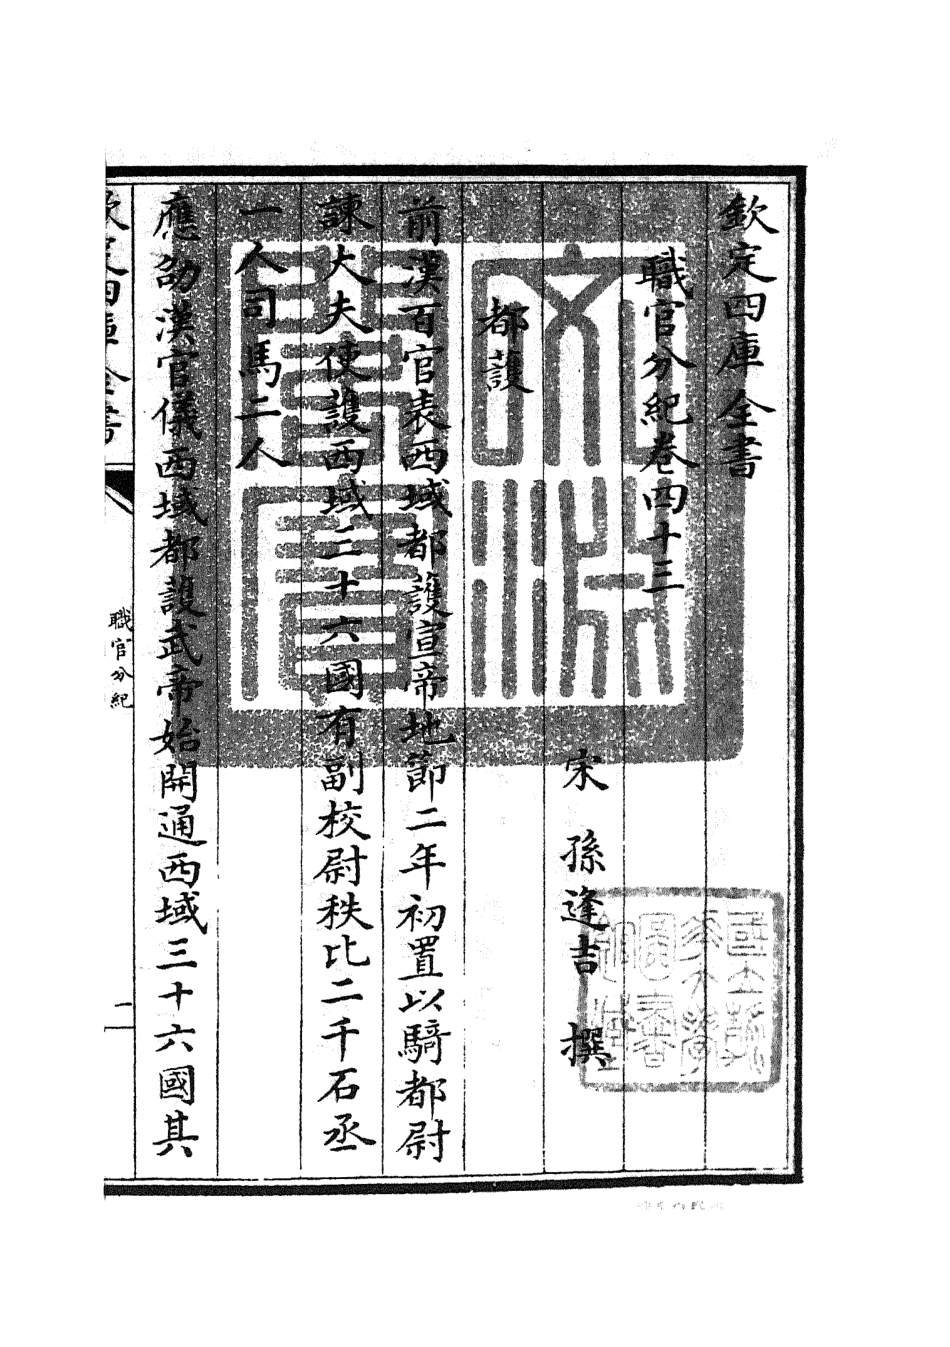 欽定四庫全書
職官分紀卷四十三
宋 孫逢吉 撰
都護
前漢百官表西域都護宣帝地節二年初置以騎都尉
諫大夫使護西域三十六國有副校尉秩比二千石丞
一人司馬二人
應劭漢官儀西域都護武帝始開通西域三十六國其
欽定四庫全書
職官分紀
一
文淵閣寶
國立浙江大學圖書館藏